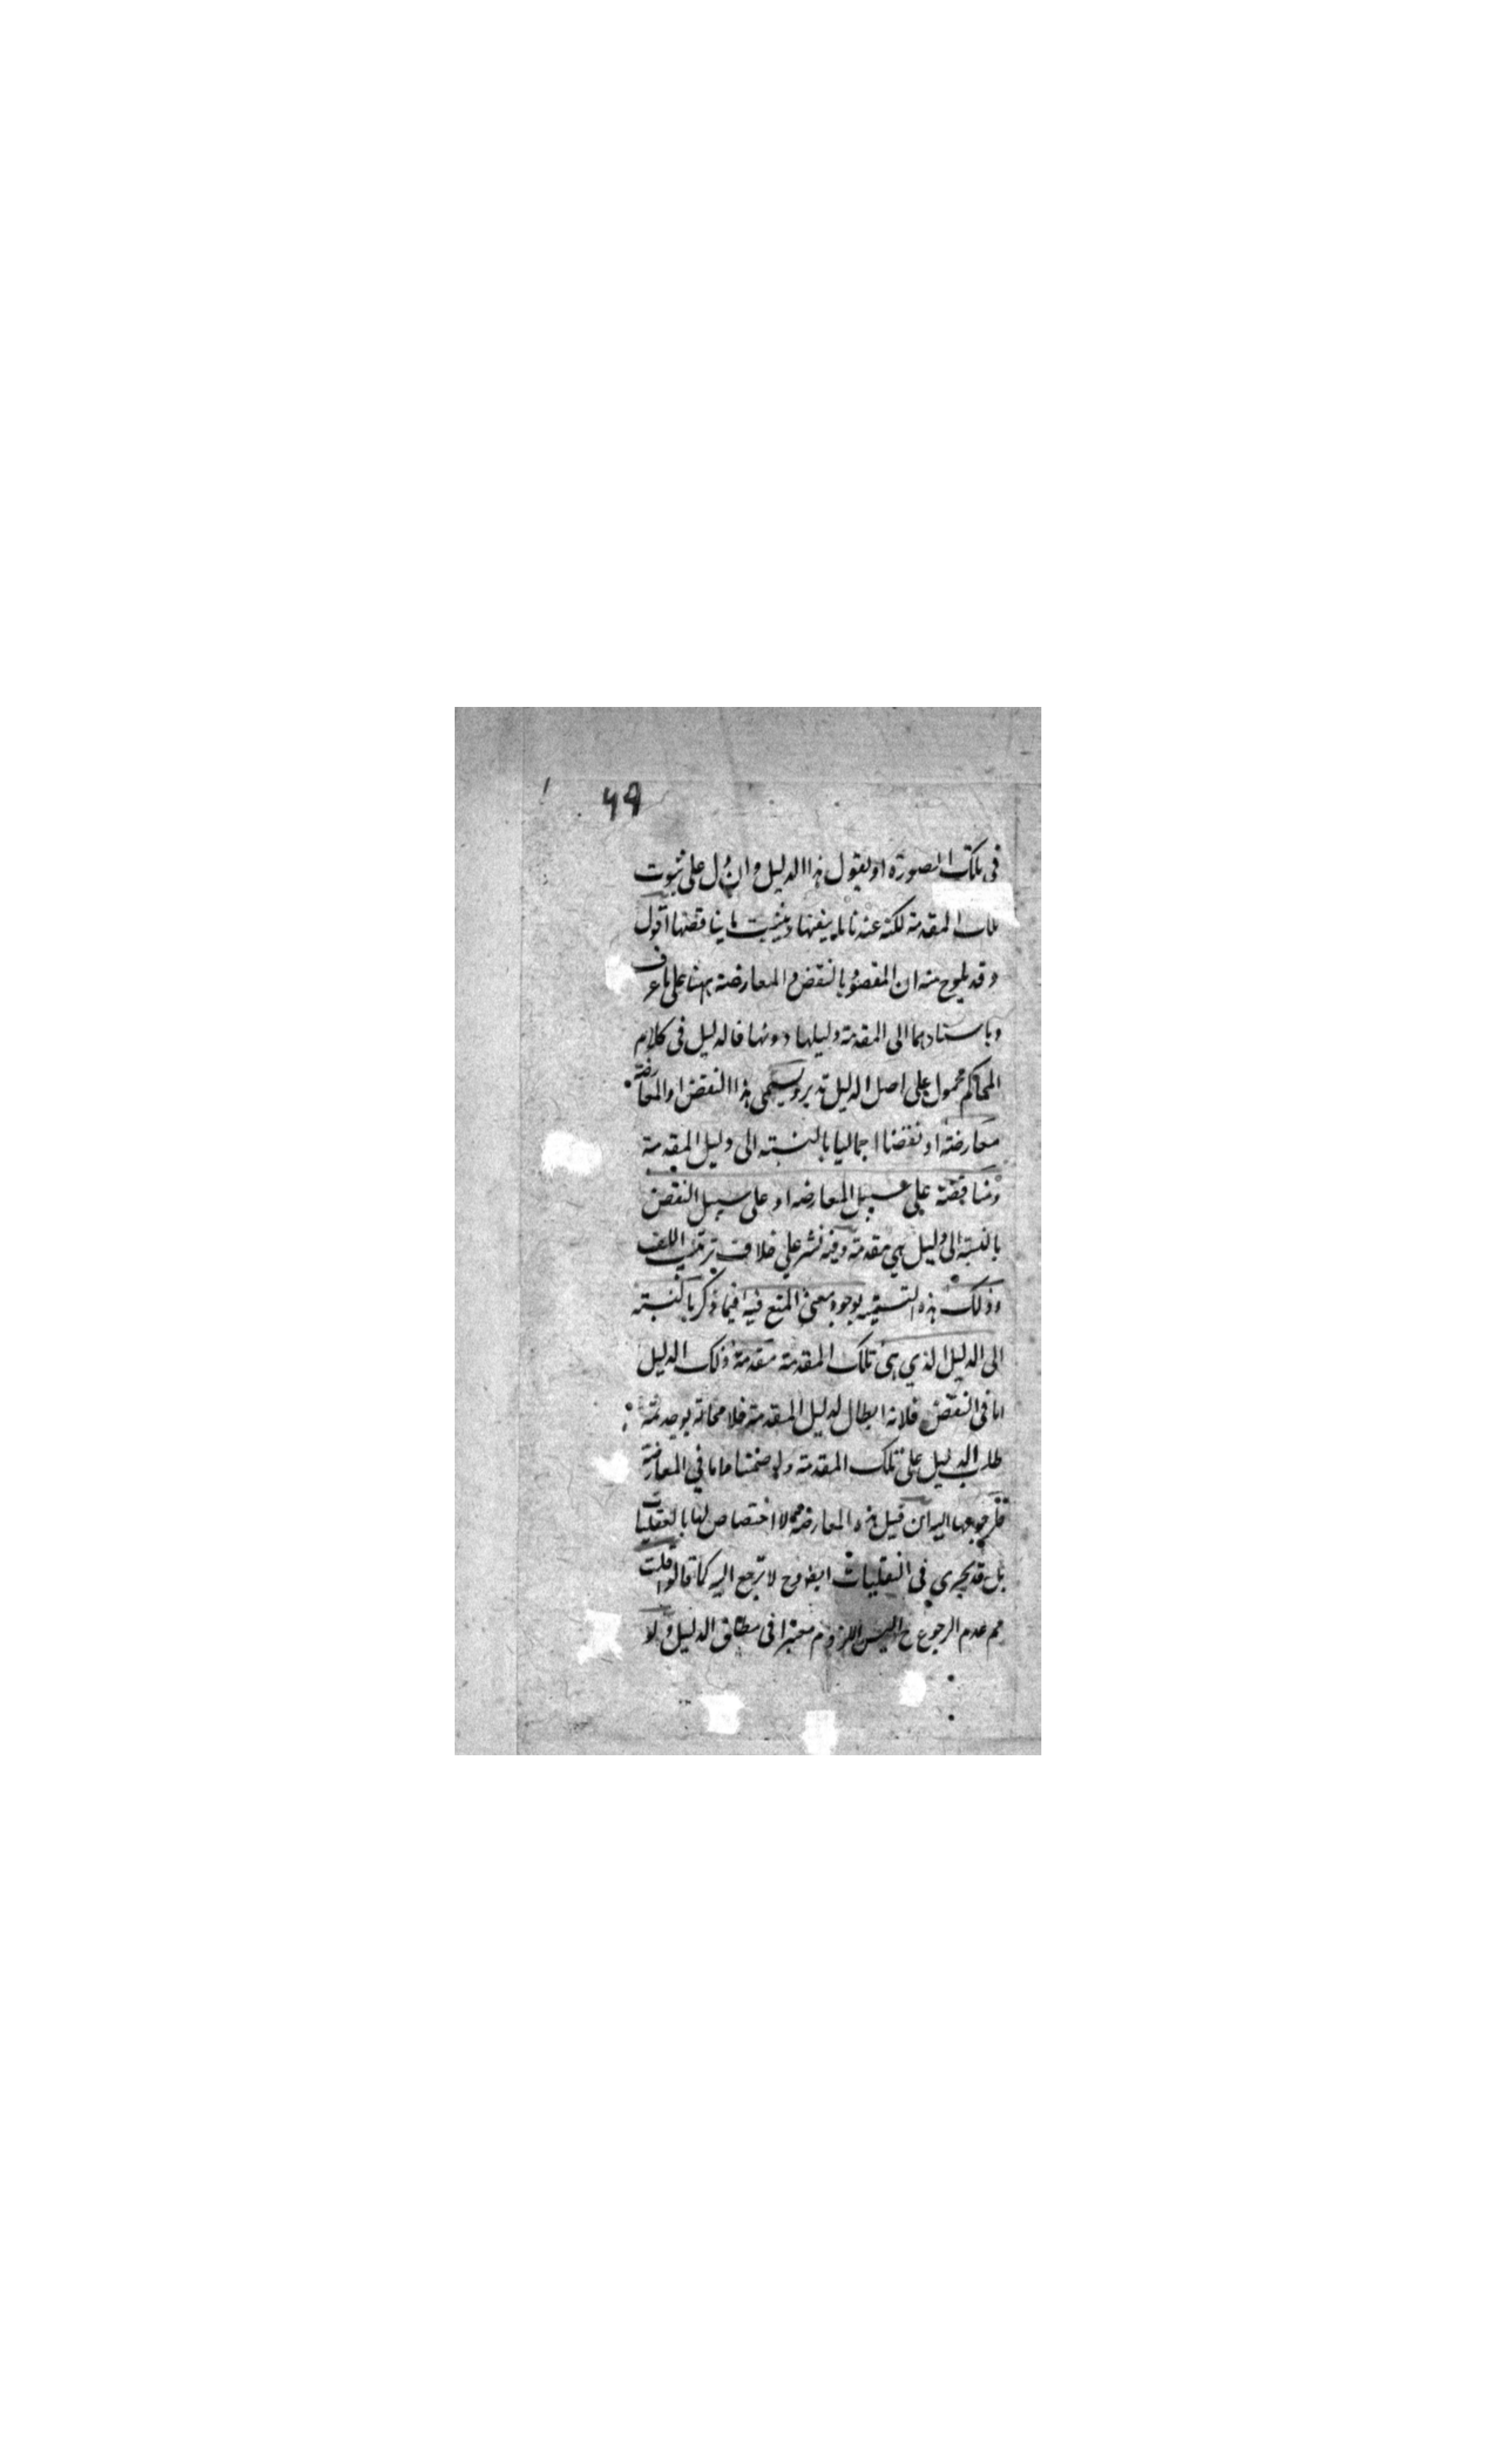 ٦٩
في تلك الصورة او يقول هذا الدليل وان دل على ثبوت
تلك المقدمة لكنه عندنا ما ينفيها ويثبت ما يناقضها اقول
وقد يلوح منه ان المقصود بالنقض والمعارضة ههنا على ما عرف
وباسنادهما الى المقدمة دليلها دونها فالدليل في كلام
المحاكم محمول على اصل الدليل تدبر ويسمى هذا النقض او المعارضة
معارضة او نقضا اجماليا بالنسبة الى دليل المقدمة
ومناقضة على سبيل المعارضة او على سبيل النقض
بالنسبة الى دليل هي مقدمته وفيه نشر على خلاف ترتيب اللف
وذلك هذه التسمية لوجود معنى المنع فيه فيما ذكر بالنسبة
الى الدليل الذي هي تلك المقدمة مقدمة ذلك الدليل
اما في النقض فلانه ابطال لدليل المقدمة فلا محالة يوجد ثمة
طلب الدليل على تلك المقدمة ولو ضمنا واما في المعارضة
فلرجوعها اليه ان قيل هذه المعارضة مما لا اختصاص لها بالعقليات
بل قد يجري في النقليات ايضا وح لا ترجع اليه كما قالوا قلت
مم عدم الرجوع ح اليس اللزوم معتبرا في مطلق الدليل ولا